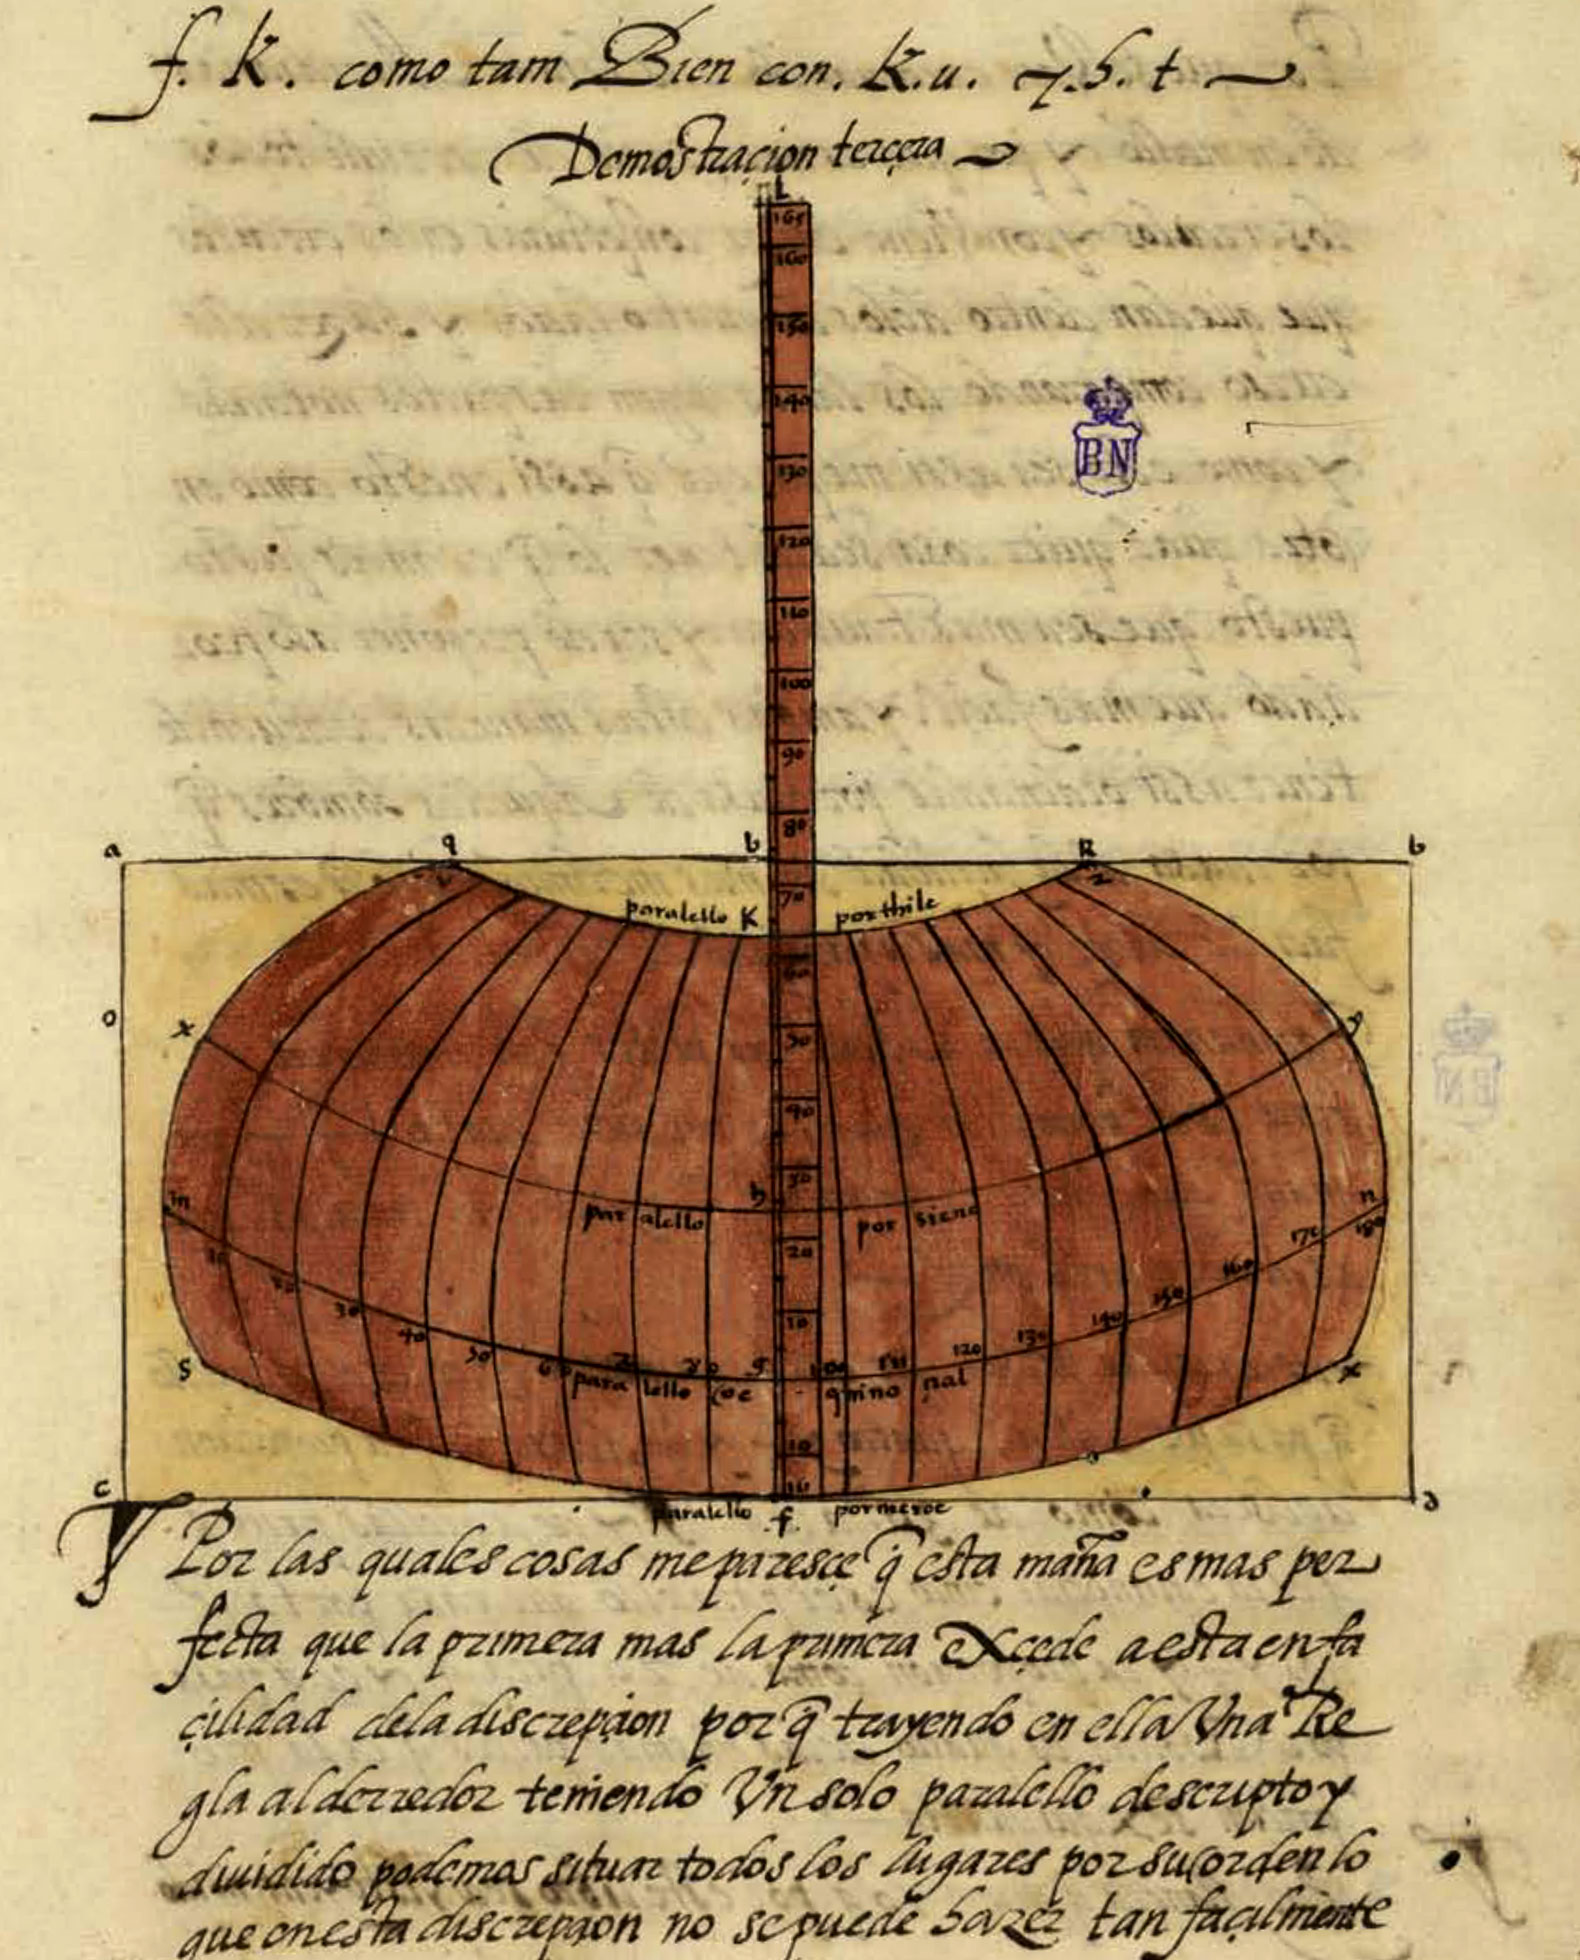 f. K. como tam Bien con. K.u. y.h. t
Demostraçion tercera
L
165
160
150
140
130
120
110
100
90
80
a q b R b
v z
70
paralello K por thile
60
o x y
50
40
30
h
paralello por siene
20
m n
10 20 30 40 50 60 70 g 100 110 120 130 140 150 160 170 180
10
paralello eequinoçnal
s x
10
16
c d
paralello f. por meroe
Por las quales cosas me paresçe q̃ esta mañа es mas per
fecta que la primera mas la primera exçede a esta en fa
çilidad dela discrepçion por q̃ trayendo en ella Vna Re
gla alderredor teniendo Vn solo paralello descripto y
diuidido podemos situar todos los lugares por su orden lo
que en esta discrepçion no se puede hazer tan façilmente
BN